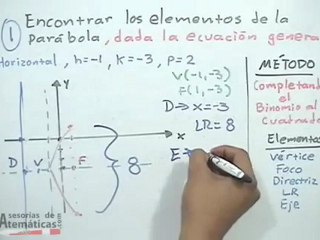 ① Encontrar los elementos de la
parábola, dada la ecuación genera
Horizontal, h=-1, K=-3, p=2
MÉTODO
Completando
el
Binomio al
Cuadrado
Elementos
Vértice
Foco
Directriz
LR
Eje
V(-1,-3)
F(1,-3)
D→ x=-3
LR=8
E→
Y
x
D
V
F
8
Asesorías de
Matemáticas